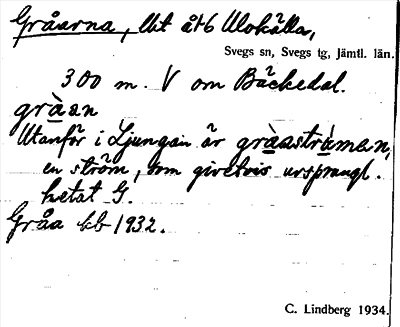 Gråarna, llit åt6 Ulokälla,
Svegs sn, Svegs tg, Jämtl. län.
300 m. V om Bäckedal.
gråan
Utanför i Ljungan är gråaströmen,
en ström, som givetvis ursprungl.
hetat G.
Gråa kb 1932.
C. Lindberg 1934.